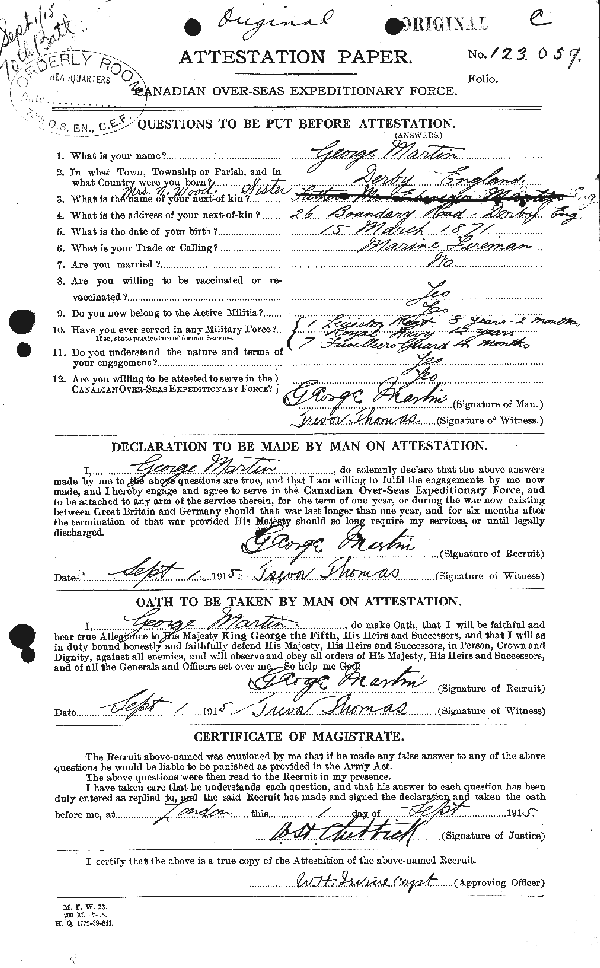 Sept 1/15
Original
ORIGINAL
C
70th Batt
ORDERLY ROOM
HEADQUARTERS
O.S. BN., C.E.F.
ATTESTATION PAPER.
No. 123057
Folio.
CANADIAN OVER-SEAS EXPEDITIONARY FORCE.
QUESTIONS TO BE PUT BEFORE ATTESTATION.
(ANSWERS)
1. What is your name? George Martin
2. In what Town, Township or Parish, and in
what Country were you born? Derby England
Mrs. Wood. Sister
3. What is the name of your next-of-kin?
4. What is the address of your next-of-kin? 26 Boundary Road - Derby Eng
5. What is the date of your birth? 15 March 1871
6. What is your Trade or Calling? Marine Fireman
7. Are you married? No
8. Are you willing to be vaccinated or re-
vaccinated? Yes
9. Do you now belong to the Active Militia? Yes
10. Have you ever served in any Military Force? 3 years - 2 months
If so, state particulars of former Service. Royal Navy 12 years
11. Do you understand the nature and terms of
your engagement? Yes
12. Are you willing to be attested to serve in the
CANADIAN OVER-SEAS EXPEDITIONARY FORCE? Yes
George Martin (Signature of Man.)
Trevor Thomas (Signature of Witness.)
DECLARATION TO BE MADE BY MAN ON ATTESTATION.
I, George Martin, do solemnly declare that the above answers
made by me to the above questions are true, and that I am willing to fulfil the engagements by me now
made, and I hereby engage and agree to serve in the Canadian Over-Seas Expeditionary Force, and
to be attached to any arm of the service therein, for the term of one year, or during the war now existing
between Great Britain and Germany should that war last longer than one year, and for six months after
the termination of that war provided His Majesty should so long require my services, or until legally
discharged.
George Martin (Signature of Recruit)
Date Sept 1 1915. Trevor Thomas (Signature of Witness)
OATH TO BE TAKEN BY MAN ON ATTESTATION.
I, George Martin, do make Oath, that I will be faithful and
bear true Allegiance to His Majesty King George the Fifth, His Heirs and Successors, and that I will as
in duty bound honestly and faithfully defend His Majesty, His Heirs and Successors, in Person, Crown and
Dignity, against all enemies, and will observe and obey all orders of His Majesty, His Heirs and Successors,
and of all the Generals and Officers set over me. So help me God.
George Martin (Signature of Recruit)
Date Sept 1 1915 Trevor Thomas (Signature of Witness)
CERTIFICATE OF MAGISTRATE.
The Recruit above-named was cautioned by me that if he made any false answer to any of the above
questions he would be liable to be punished as provided in the Army Act.
The above questions were then read to the Recruit in my presence.
I have taken care that he understands each question, and that his answer to each question has been
duly entered as replied to, and the said Recruit has made and signed the declaration and taken the oath
before me, at London this 1 day of Sept 1915
(Signature of Justice)
I certify that the above is a true copy of the Attestation of the above-named Recruit.
W.H. Irvine Capt (Approving Officer)
M. F. W. 23.
H. Q. 1772-39-841.